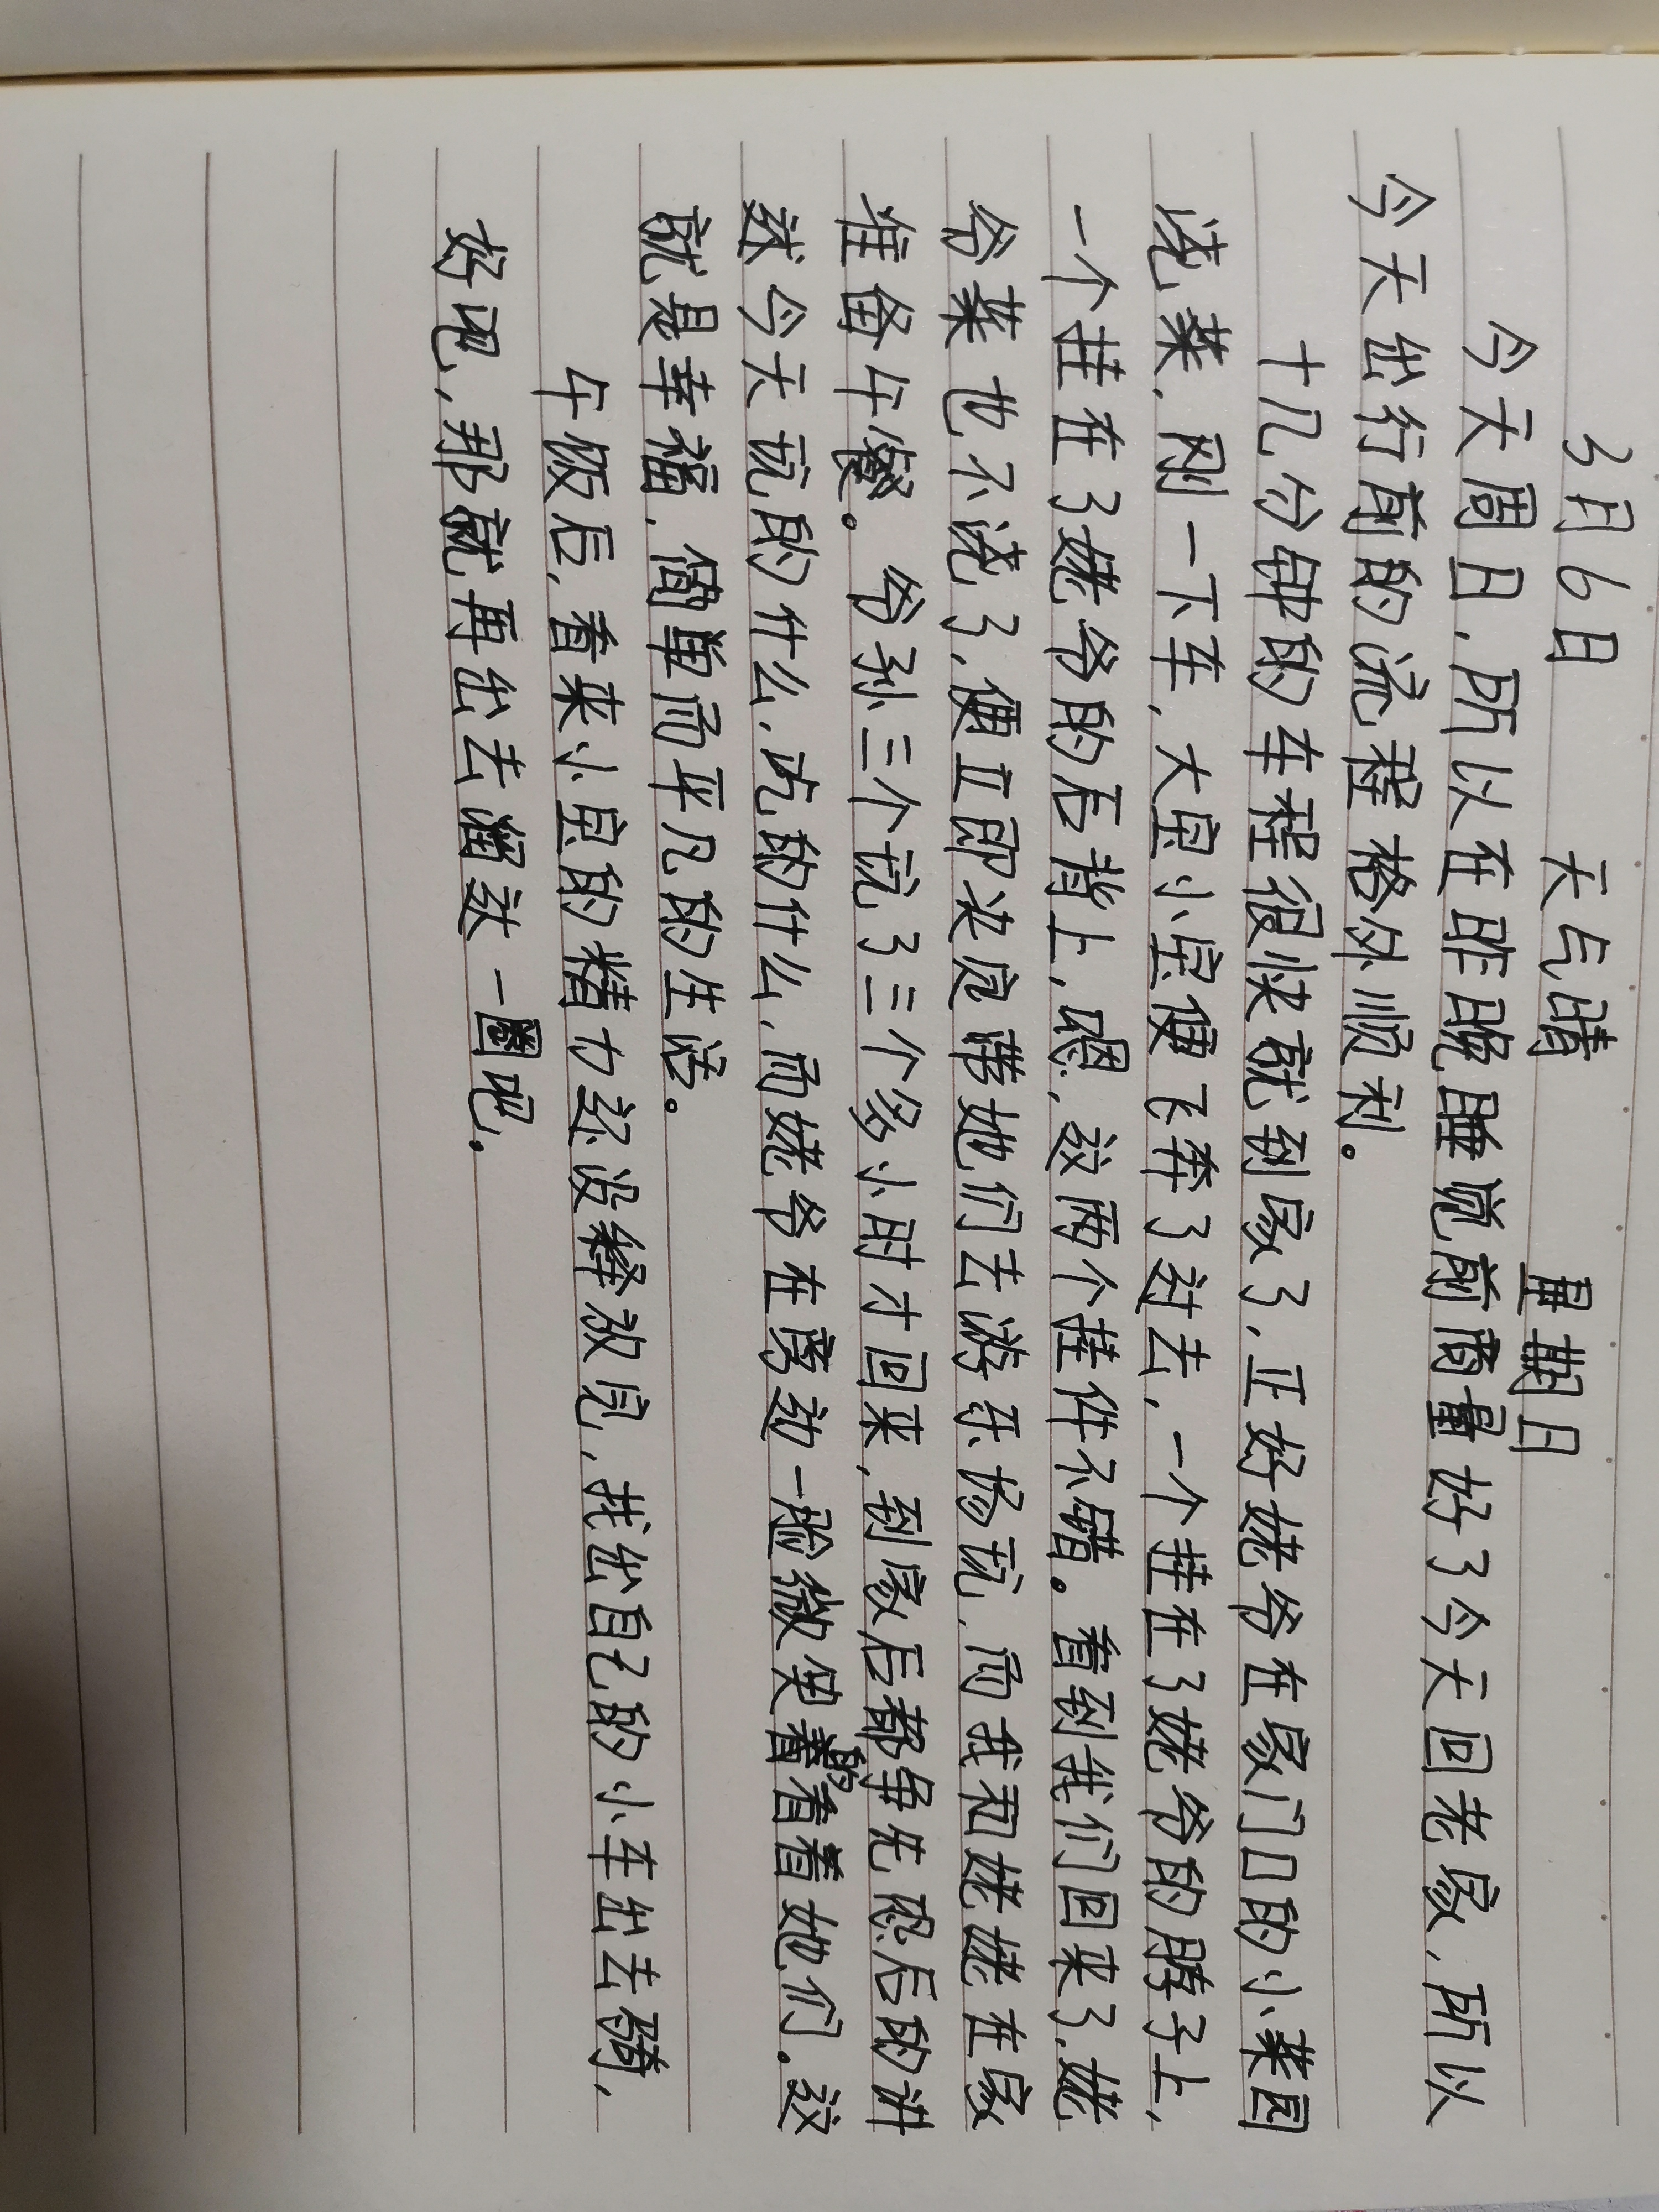 3月6日 天气晴 星期日
今天周日，所以在昨晚睡觉前商量好了今天回老家，所以
今天出行前的流程格外顺利。
十几分钟的车程很快就到家了，正好姥爷在家门口的小菜园
浇菜，刚一下车，大宝小宝便飞奔了过去，一个挂在了姥爷的脖子上，
一个挂在了姥爷的后背上，嗯，这两个挂件不错。看到我们回来了，姥
爷菜也不浇了，便立即决定带她们去游乐场玩，而我和姥姥在家
准备午餐。爷孙三个玩了三个多小时才回来，到家后都争先恐后的讲
述今天玩的什么，吃的什么，而姥爷在旁边一脸微笑着看着她们。这
就是幸福，简单而平凡的生活。
午饭后，看来小宝的精力还没释放完，找出自己的小车出去骑，
好吧，那就再出去溜达一圈吧。